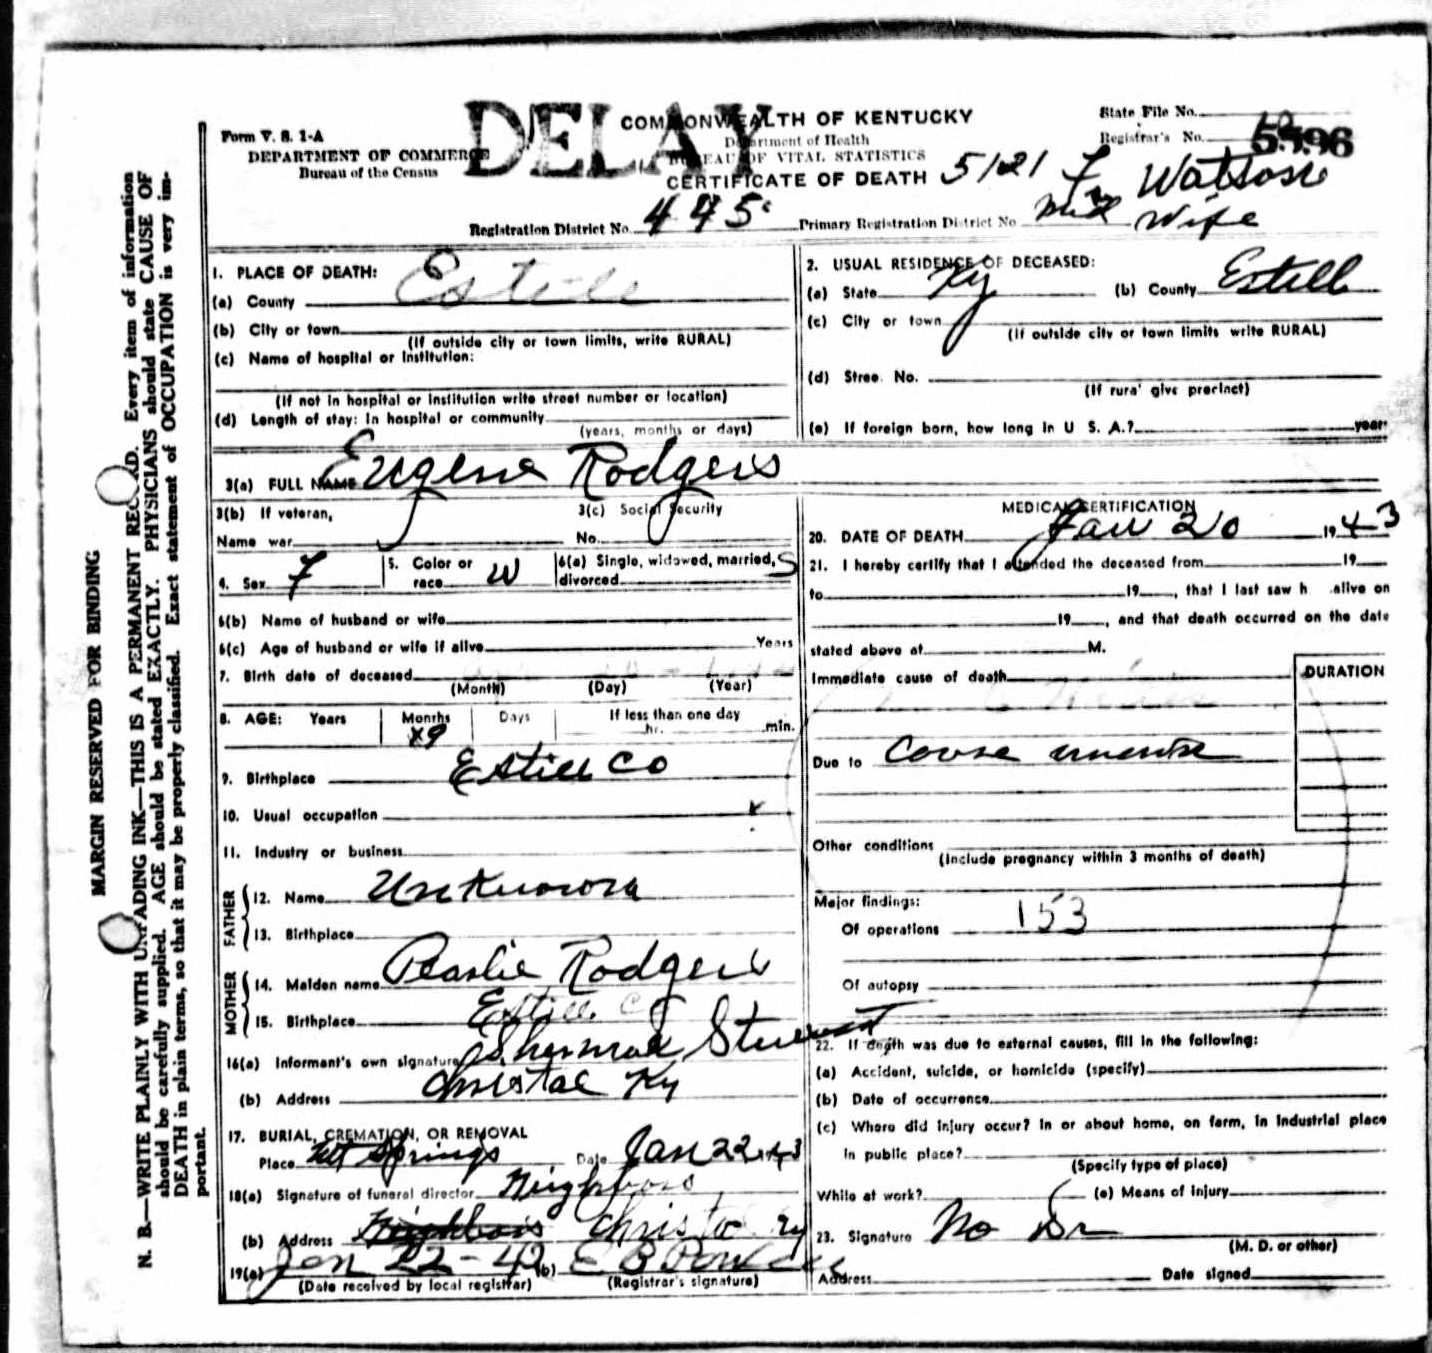 DELAY
COMMONWEALTH OF KENTUCKY
Department of Health
BUREAU OF VITAL STATISTICS
CERTIFICATE OF DEATH 5121
Form V. S. 1-A
DEPARTMENT OF COMMERCE
Bureau of the Census
State File No.
Registrar's No.
Watson
Mid Wife
Registration District No. 445
Primary Registration District No
MARGIN RESERVED FOR BINDING
N. B.—WRITE PLAINLY WITH UNFADING INK—THIS IS A PERMANENT RECORD. Every item of information
should be carefully supplied. AGE should be stated EXACTLY. PHYSICIANS should state CAUSE OF
DEATH in plain terms, so that it may be properly classified. Exact statement of OCCUPATION is very im-
portant.
1. PLACE OF DEATH:
(a) County Estill
(b) City or town
(If outside city or town limits, write RURAL)
(c) Name of hospital or institution:
(If not in hospital or institution write street number or location)
(d) Length of stay: In hospital or community
(years, months or days)
2. USUAL RESIDENCE OF DECEASED:
(a) State Ky (b) County Estill
(c) City or town
(If outside city or town limits write RURAL)
(d) Stree. No.
(If rura' give precinct)
(e) If foreign born, how long in U S. A.? year
3(a) FULL NAME Eugene Rodgers
3(b) If veteran,
Name war
3(c) Social Security
No.
4. Sex F
5. Color or
race W
6(a) Single, widowed, married, S
divorced
6(b) Name of husband or wife
6(c) Age of husband or wife if alive Years
7. Birth date of deceased
(Month) (Day) (Year)
8. AGE: Years Months Days If less than one day
hr. min.
9. Birthplace Estill Co
10. Usual occupation
11. Industry or business
FATHER
12. Name Unknown
13. Birthplace
MOTHER
14. Maiden name Pearlie Rodgers
15. Birthplace Estill Co
16(a) Informant's own signature Sherman Stewart
(b) Address Christal Ky
17. BURIAL, CREMATION, OR REMOVAL
Place Springs Date Jan 22 43
18(a) Signature of funeral director Neighbors
(b) Address Neighbors Ky
19(a) Jan 22-42 (b) E B
(Date received by local registrar) (Registrar's signature)
MEDICAL CERTIFICATION
20. DATE OF DEATH Jan 20 1943
21. I hereby certify that I attended the deceased from 19
to 19, that I last saw h alive on
19, and that death occurred on the date
stated above at M.
Immediate cause of death
DURATION
Due to Cause
Other conditions
(Include pregnancy within 3 months of death)
Major findings:
Of operations 153
Of autopsy
22. If death was due to external causes, fill in the following:
(a) Accident, suicide, or homicide (specify)
(b) Date of occurrence
(c) Where did injury occur? In or about home, on farm, in industrial place
in public place?
(Specify type of place)
While at work? (e) Means of injury
23. Signature No Dr
(M. D. or other)
Address Date signed